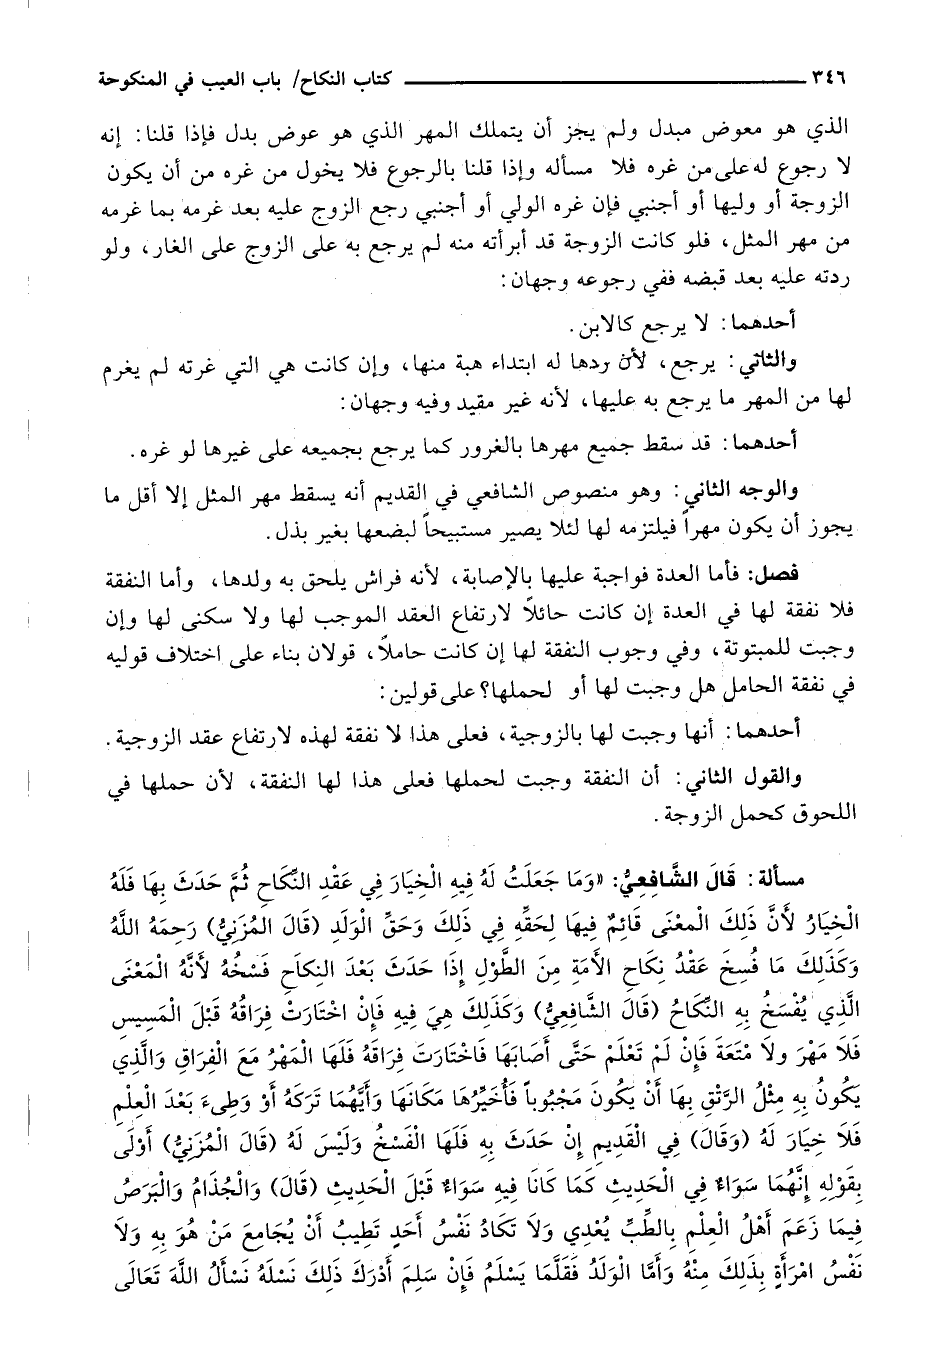 ٣٤٦ كتاب النكاح/ باب العيب في المنكوحة
الذي هو معوض مبدل ولم يجز أن يتملك المهر الذي هو عوض بدل فإذا قلنا: إنه
لا رجوع له على من غره فلا مسأله وإذا قلنا بالرجوع فلا يخول من غره من أن يكون
الزوجة أو وليها أو أجنبي فإن غره الولي أو أجنبي رجع الزوج عليه بعد غرمه بما غرمه
من مهر المثل، فلو كانت الزوجة قد أبرأته منه لم يرجع به على الزوج على الغار، ولو
ردته عليه بعد قبضه ففي رجوعه وجهان:
أحدهما: لا يرجع كالابن.
والثاني: يرجع، لأن ردها له ابتداء هبة منها، وإن كانت هي التي غرته لم يغرم
لها من المهر ما يرجع به عليها، لأنه غير مقيد وفيه وجهان:
أحدهما: قد سقط جميع مهرها بالغرور كما يرجع بجميعه على غيرها لو غره.
والوجه الثاني: وهو منصوص الشافعي في القديم أنه يسقط مهر المثل إلا أقل ما
يجوز أن يكون مهراً فيلتزمه لها لئلا يصير مستبيحاً لبضعها بغير بذل.
فصل: فأما العدة فواجبة عليها بالإصابة، لأنه فراش يلحق به ولدها، وأما النفقة
فلا نفقة لها في العدة إن كانت حائلاً لارتفاع العقد الموجب لها ولا سكنى لها وإن
وجبت للمبتوتة، وفي وجوب النفقة لها إن كانت حاملاً، قولان بناء على اختلاف قوليه
في نفقة الحامل هل وجبت لها أو لحملها؟ على قولين:
أحدهما: أنها وجبت لها بالزوجية، فعلى هذا لا نفقة لهذه لارتفاع عقد الزوجية.
والقول الثاني: أن النفقة وجبت لحملها فعلى هذا لها النفقة، لأن حملها في
اللحوق كحمل الزوجة.
مسألة: قَالَ الشَّافِعِيُّ: «وَمَا جَعَلَتُ لَهُ فِيهِ الْخِيَارَ فِي عَقْدِ النِّكَاحِ ثُمَّ حَدَثَ بِهَا فَلَهُ
الْخِيَارُ لأَنَّ ذَلِكَ الْمعْنَى قَائِمٌ فِيهَا لِحَقِّهِ فِي ذَلِكَ وَحَقِّ الْوَلَدِ (قَالَ الْمُزَنِيُّ) رَحِمَهُ اللَّهُ
وَكَذَلِكَ مَا فُسِخَ عَقْدُ نِكَاحِ الأَمَةِ مِنَ الطَّوْلِ إِذَا حَدَثَ بَعْدَ النِكَاحِ فَسْخُهُ لأَنَّهُ الْمَعْنَى
الَّذِي يُفْسَخُ بِهِ النِّكَاحُ (قَالَ الشَّافِعِيُّ) وَكَذَلِكَ هِيَ فِيهِ فَإِنْ اخْتَارَتْ فِرَاقُهُ قَبْلَ الْمَسِيسِ
فَلَا مَهْرَ ولَا مَتْعَةَ فَإِنْ لَمْ تَعْلَمْ حَتَّى أَصَابَهَا فَاخْتَارَتَ فِرَاقَهُ فَلَهَا الْمَهْرُ مَعَ الْفِرَاقِ وَالَّذِي
يَكُونُ بِهِ مِثْلُ الرَّتْقِ بِهَا أَنْ يَكُونَ مَجْبُوباً فَأُخَيِّرُهَا مَكَانَهَا وَأَيُّهُمَا تَرَكَهُ أَوْ وَطِىءَ بَعْدَ الْعِلْمِ
فَلَا خِيَارَ لَهُ (وَقَالَ) فِي الْقَدِيمِ إِنْ حَدَثَ بِهِ فَلَهَا الْفَسْخُ وَلَيْسَ لَهُ (قَالَ الْمُزَنِيُّ) أَوْلَى
بِقَوْلِهِ إِنَّهُمَا سَوَاءٌ فِي الْحَدِيثِ كَمَا كَانَا فِيهِ سَوَاءٌ قَبْلَ الْحَدِيثِ (قَالَ) وَالْجُذَامُ وَالْبَرَصُ
فِيمَا زَعَمَ أَهْلُ الْعِلْمِ بِالطِّبِّ يُعْدِي وَلَا تَكَادُ نَفْسُ أَحَدٍ تَطِيبُ أَنْ يُجَامِعَ مَنْ هُوَ بِهِ وَلَا
نَفْسُ امْرَأَةٍ بِذَلِكَ مِنْهُ وَأَمَّا الْوَلَدُ فَقَلَّمَا يَسْلَمُ فَإِنْ سَلِمَ أَدْرَكَ ذَلِكَ نَسْلَهُ نَسْأَلُ اللَّهَ تَعَالَى